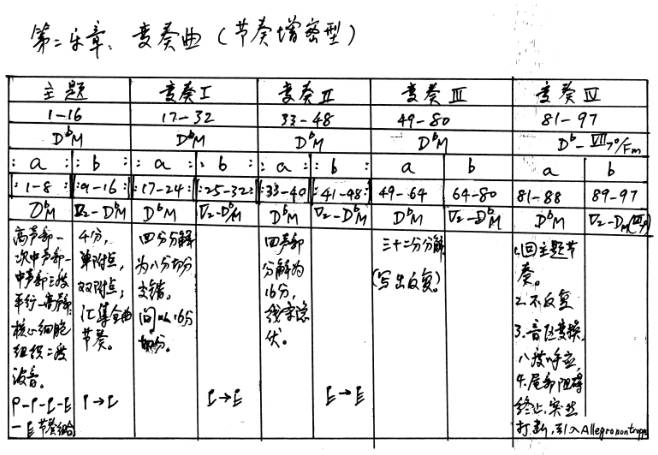 第二乐章、变奏曲（节奏增密型）
主题 变奏I 变奏II 变奏III 变奏IV
1-16 17-32 33-48 49-80 81-97
DᵇM DᵇM DᵇM DᵇM Dᵇ-VII7°/Fm
:a: :b: :a: :b: :a: :b: a b a b
:1-8: :9-16: :17-24: :25-32: :33-40: :41-48: 49-64 64-80 81-88 89-97
DᵇM V2-DᵇM DᵇM V2-DᵇM DᵇM V2-DᵇM DᵇM V2-DᵇM DᵇM V2-DM
高声部-
次中声部-
中声部三度
平行-高声部
核心细胞
组织二度
波音。
节奏组合
4分,
单附点,
双附点,
汇集全曲
节奏。
四分分解
为八分切分
交错。
间以16分
切分。
四声部
分解为
16分,
线条隐
伏。
三十二分分解
(写出反复)。
1.回主题节
奏。
2.不反复
3.音区变换,
八度呼应
4.尾部阻碍
终止,突然
打断,引入Allegro non troppo